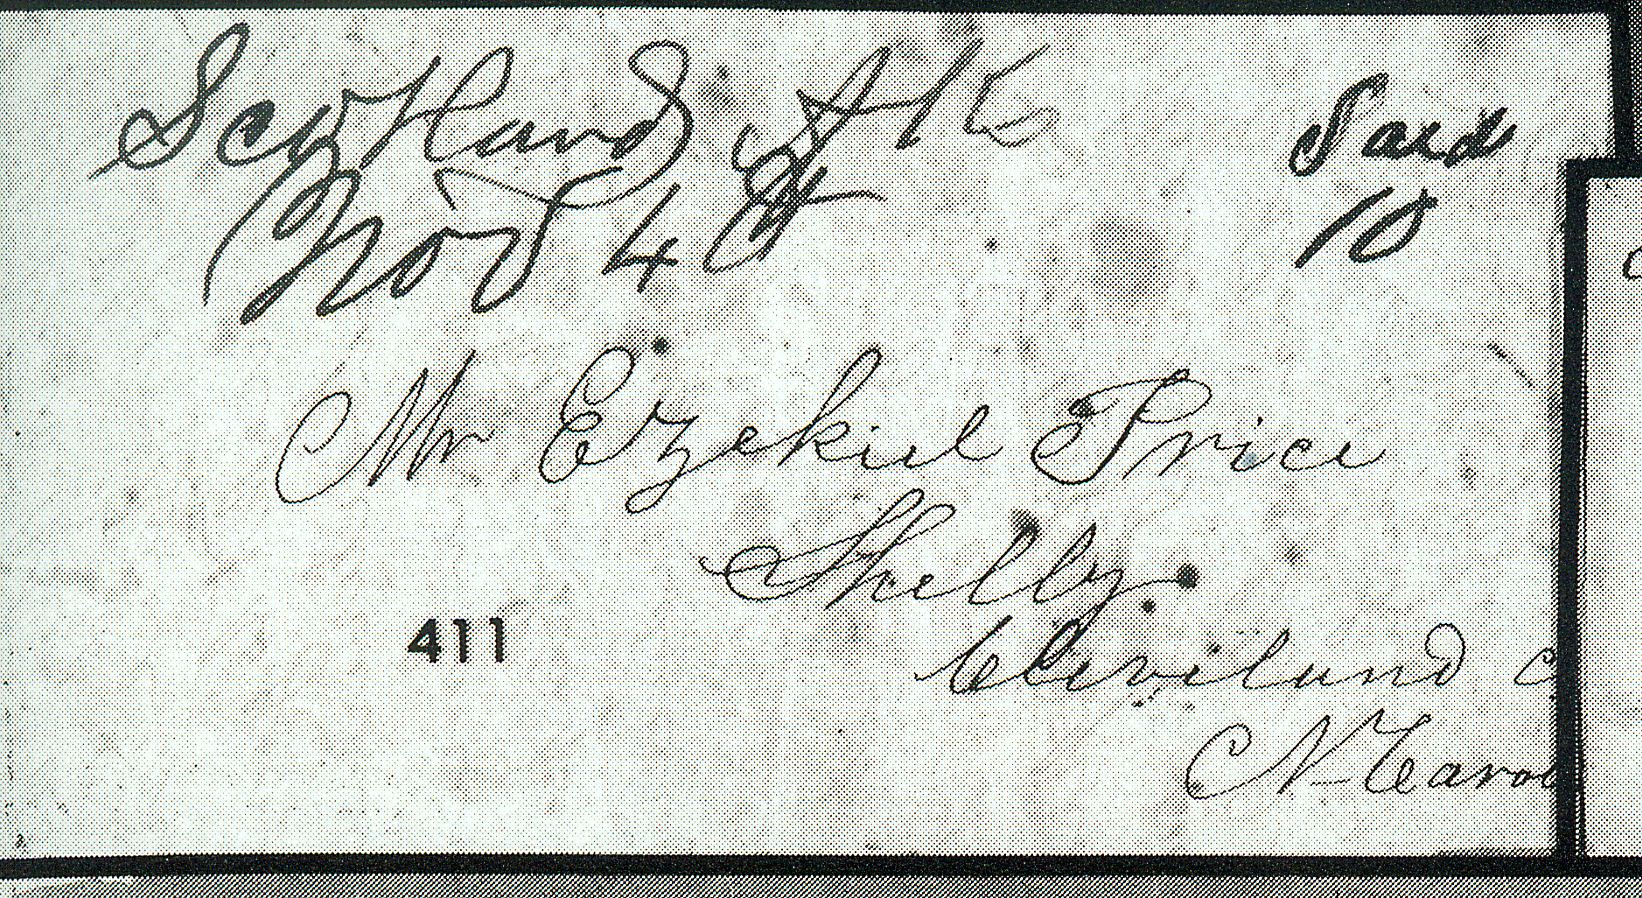 Scotland Ark
Nov 4th
Paid
10
Mr Ezekiel Price
Shelby
Cleveland C
N Caro
411